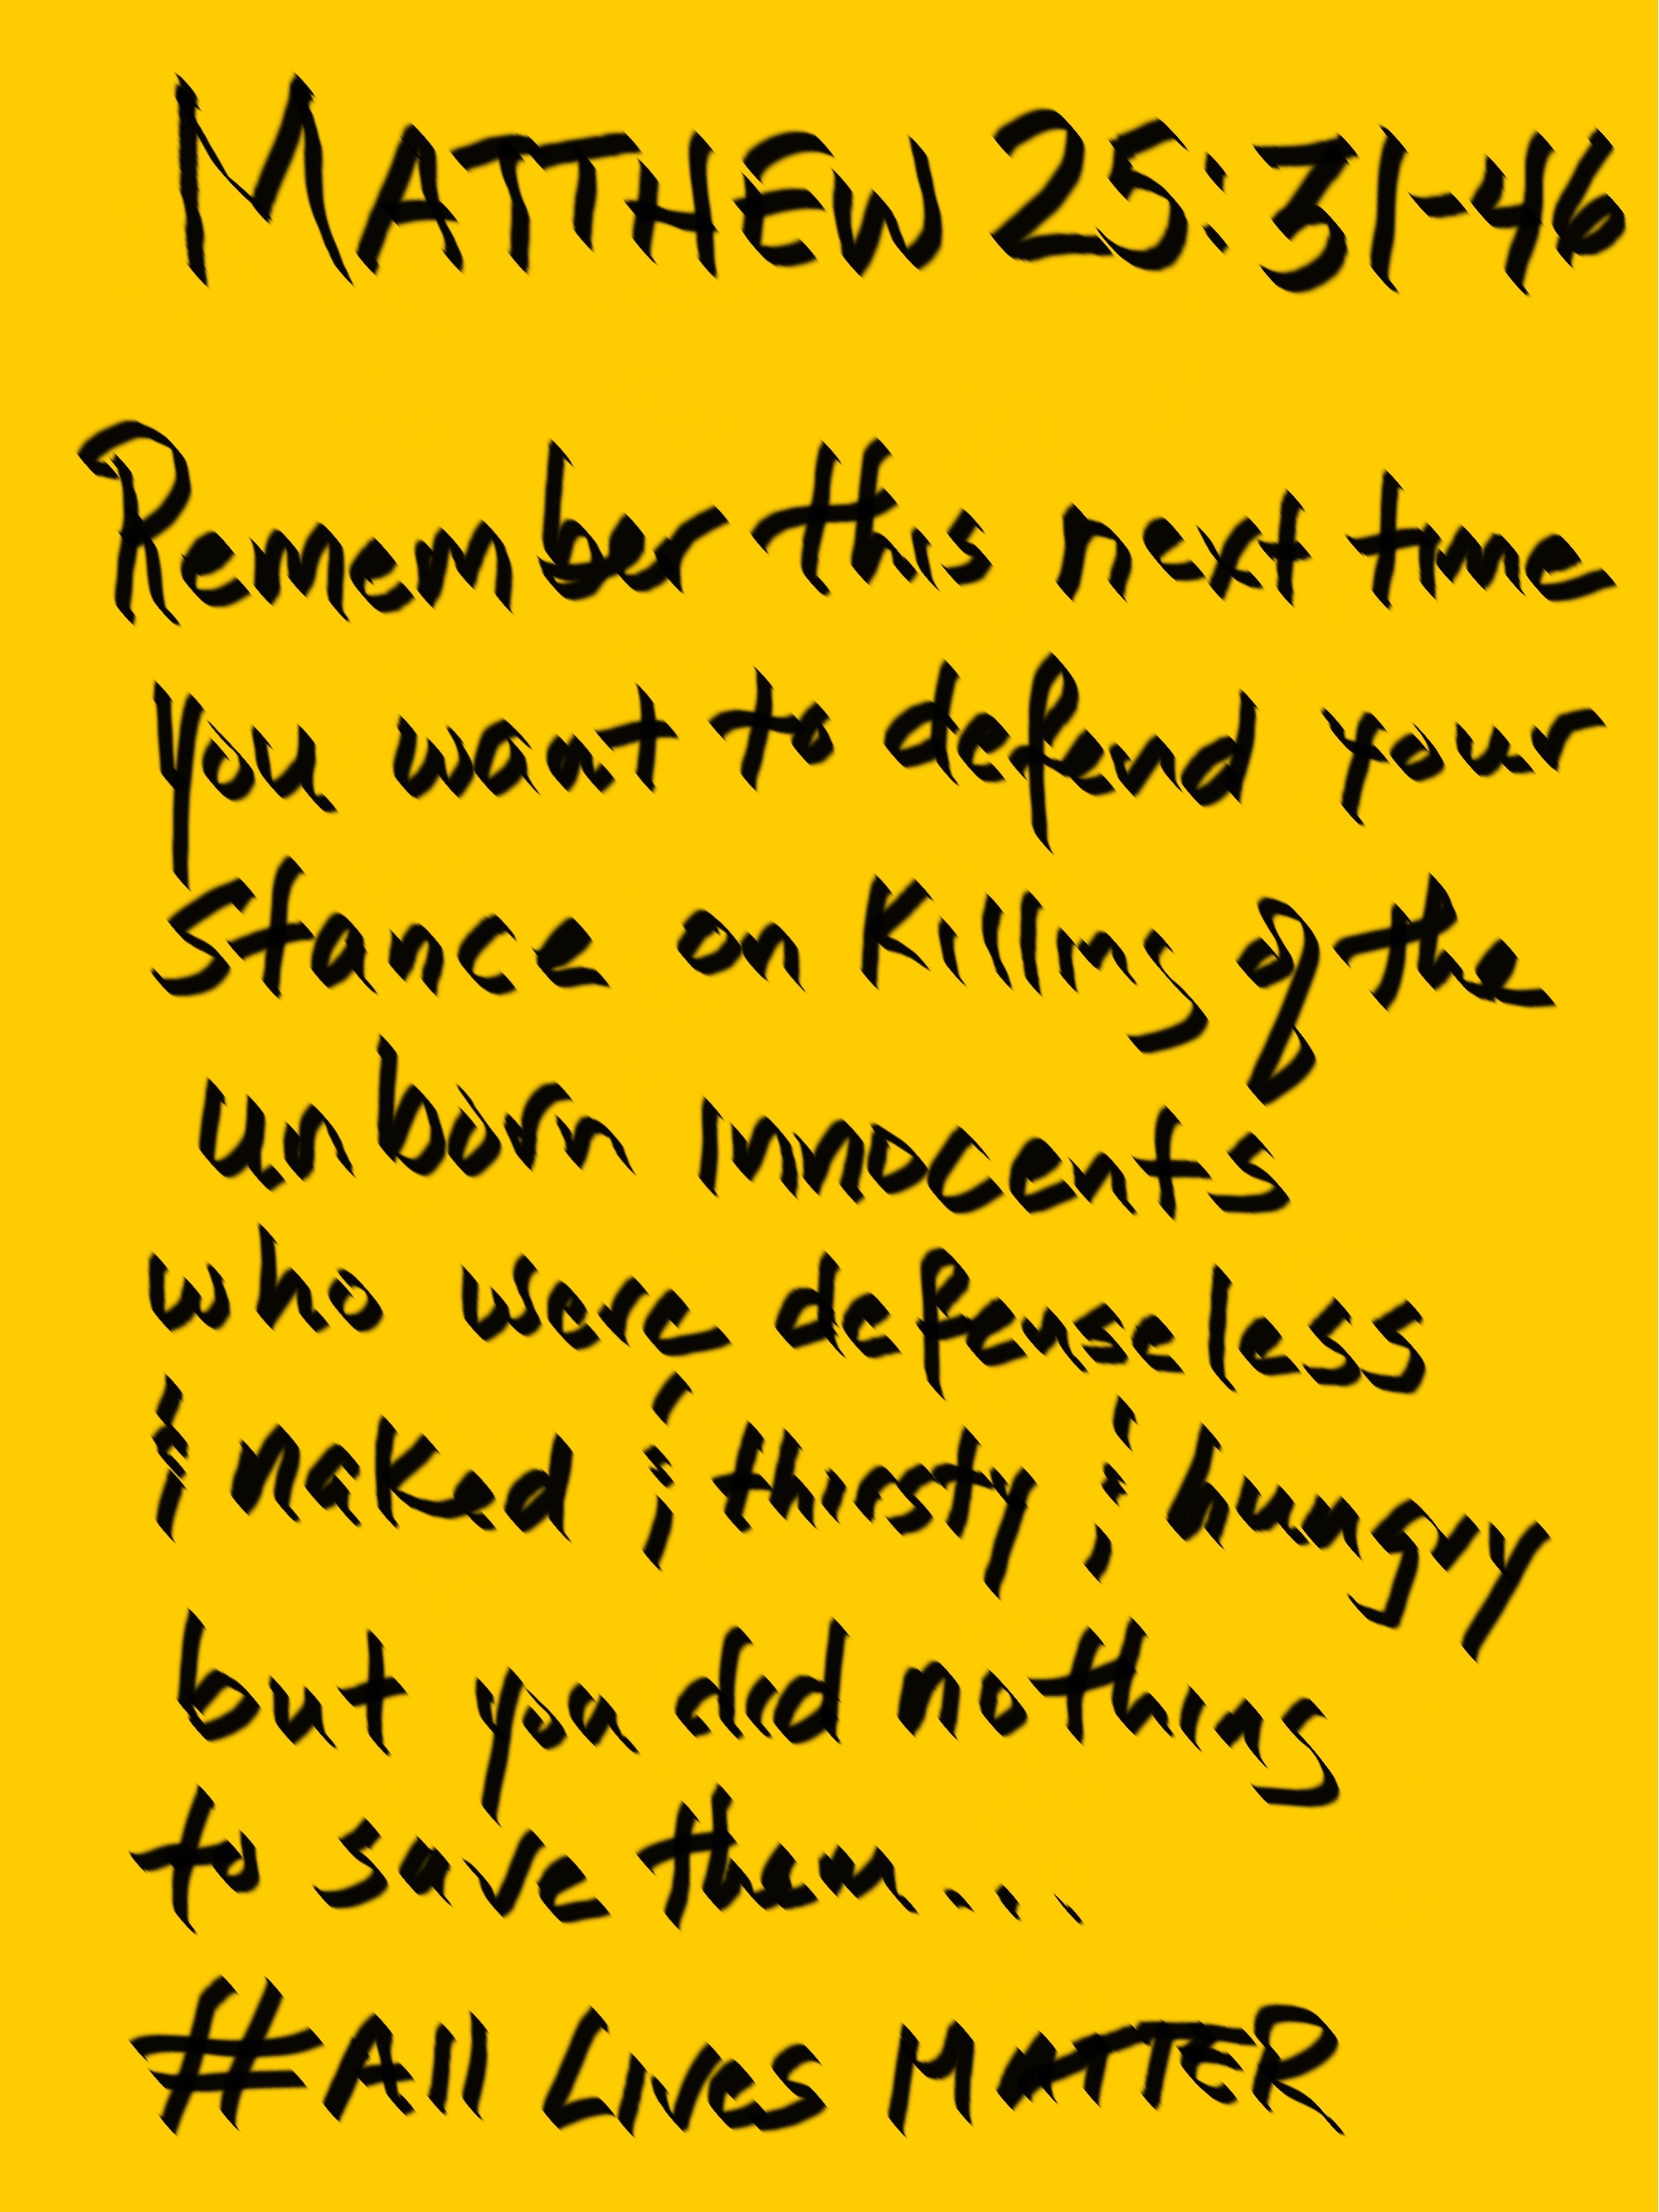 MATTHEW 25:31-46
Remember this next time
you want to defend your
Stance on Killing of the
unborn innocents
who were defenseless
& naked & thirsty & hungry
but you did nothing
to save them...
#All Lives MATTER